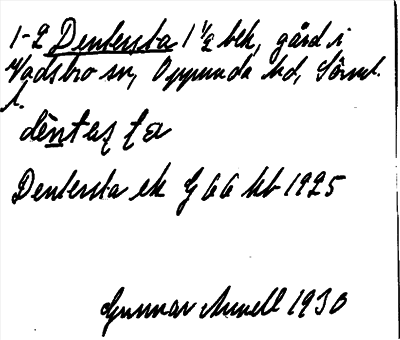 1-2 Dentersta 1 1/2 bek, gård i
Vadsbro sn, Oppunda hd, Sörml.
l.
dèntaș ta
Dentersta ek G 66 hb 1925
Gunnar 1930